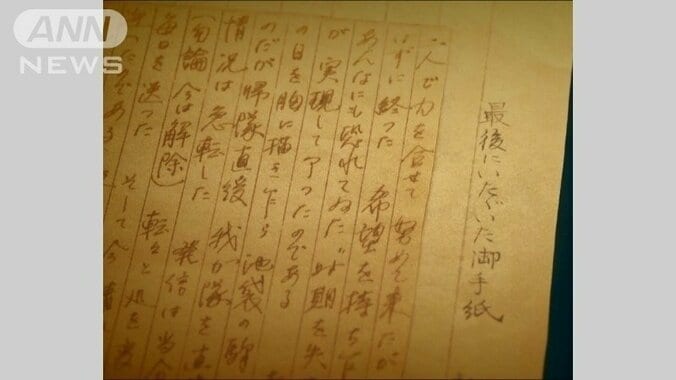 ANN
NEWS
最後にいたゞいた御手紙
二人で力を合せて 努めて来たが
ずに終つた 希望を持ち
あんなにも恐れてゐた“時期を失
が 実現して了つたのである
の日を胸に描き乍ら 池袋の駅
のだが 帰隊直後 我が隊を直
情況は急転した 発信は当分
(勿論 今は解除) 転々と処を
毎日を送つた そして今
たのである